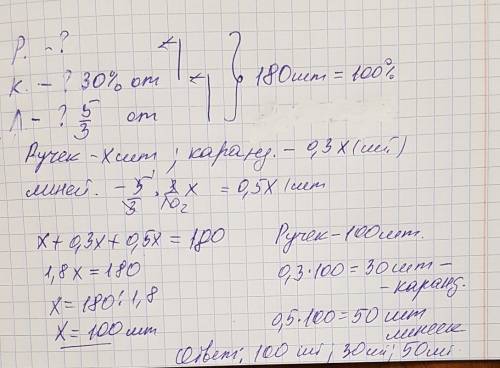 Р. - ?
К. - ? 30% от
Л - ? 5/3 от
180 шт = 100%
Ручек - х шт ; каранд. - 0,3х (шт)
линей. - 5/3 · 3/10 х = 0,5х (шт
х + 0,3х + 0,5х = 180
1,8х = 180
х = 180 : 1,8
х = 100 шт
Ручек - 100 шт.
0,3 · 100 = 30 шт -
- каранд.
0,5 · 100 = 50 шт
линеек
Ответ: 100 шт; 30 шт; 50 шт.